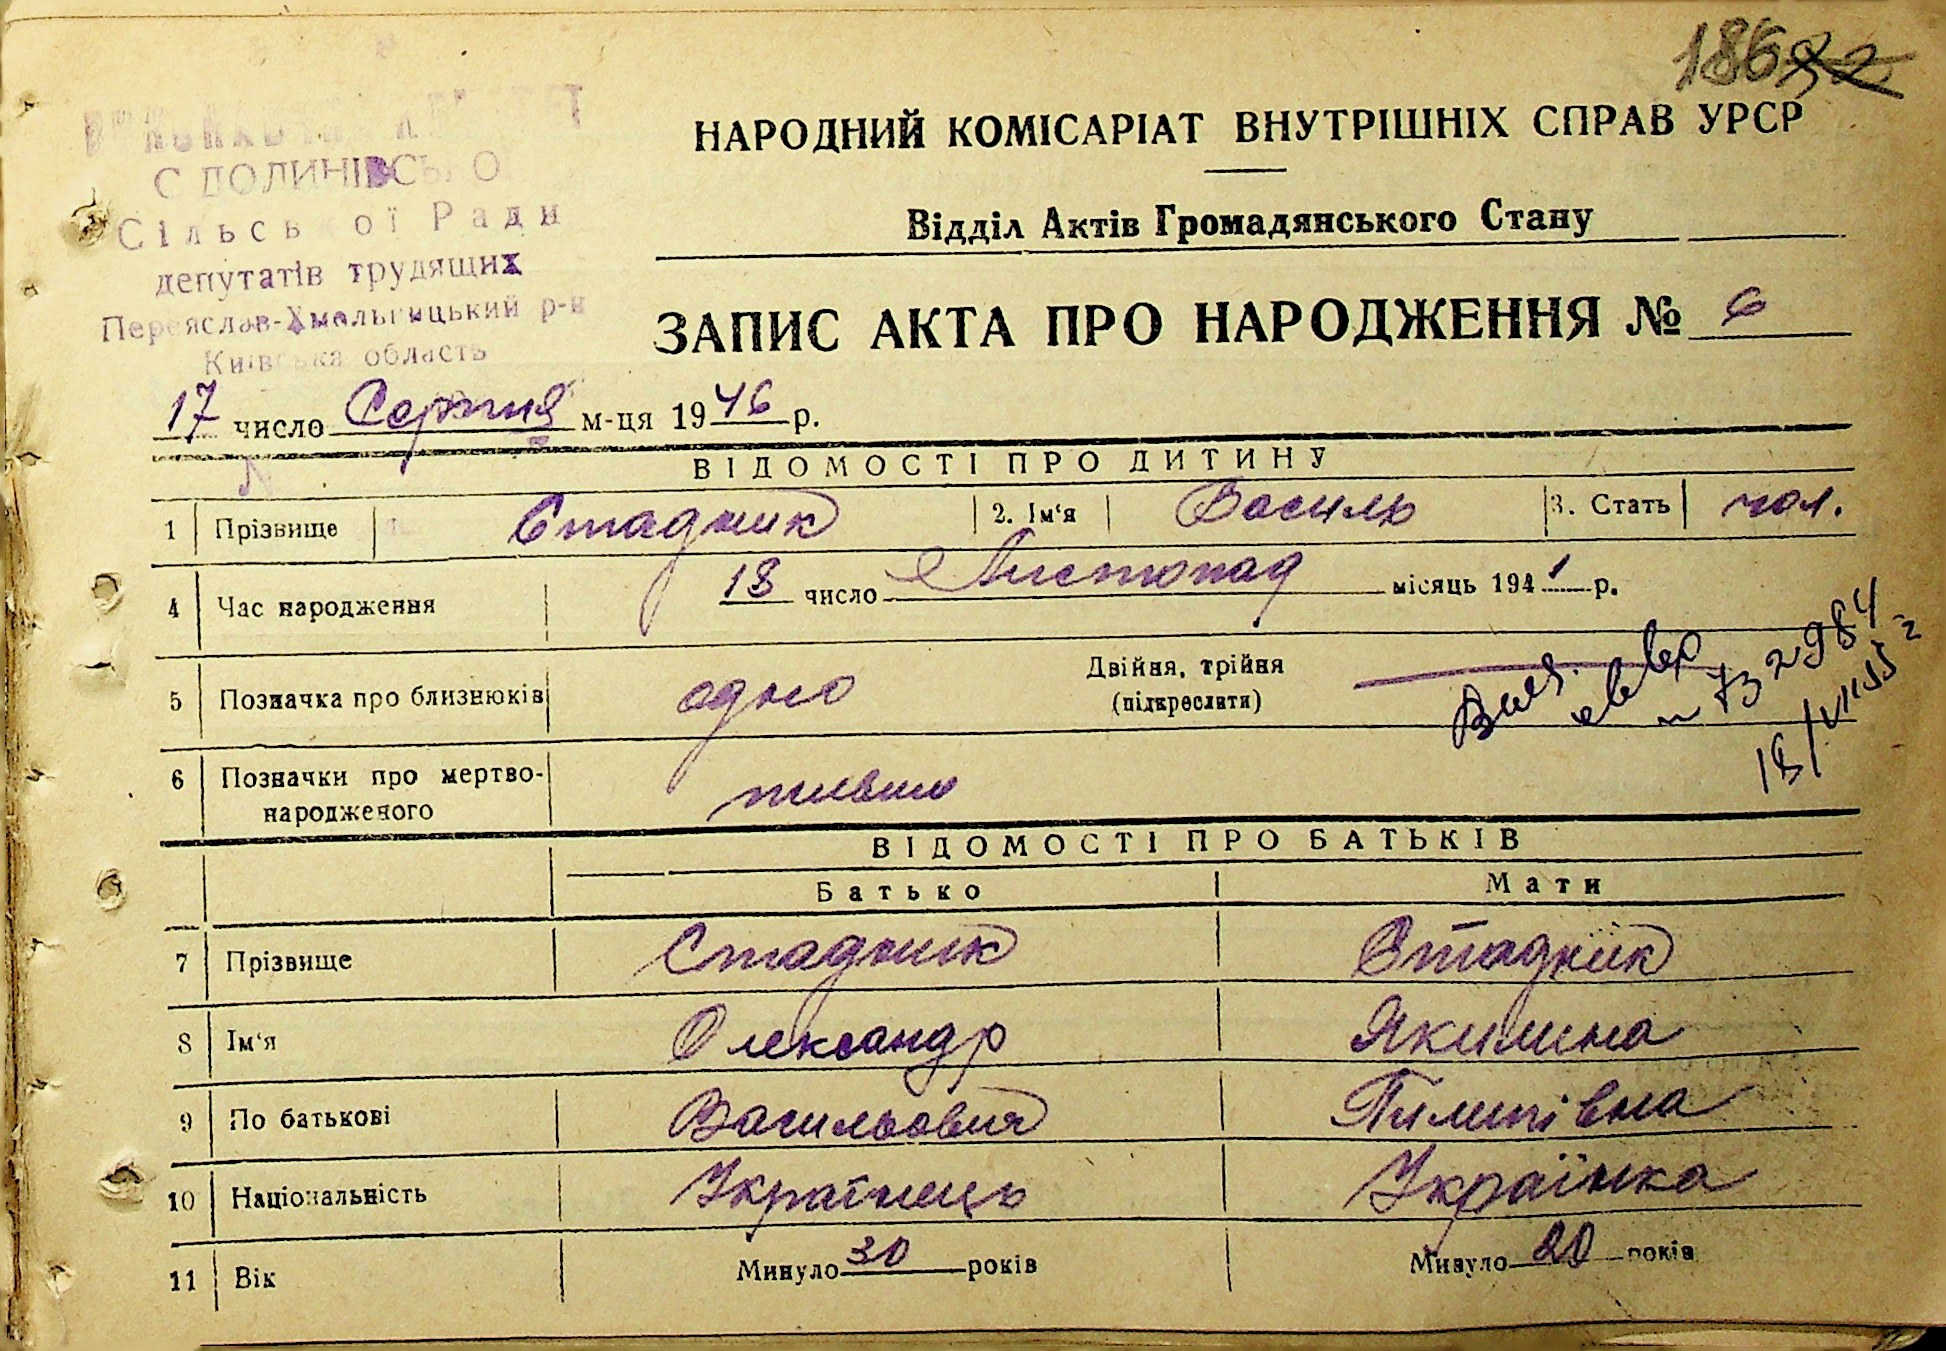 186 82
НАРОДНИЙ КОМІСАРІАТ ВНУТРІШНІХ СПРАВ УРСР
Відділ Актів Громадянського Стану
С ДОЛИНІВСЬКО
Сільської Ради
депутатів трудящих
Переяслав-Хмельницький р-н
Київська область
ЗАПИС АКТА ПРО НАРОДЖЕННЯ № 6
17 число Серпня м-ця 1946 р.
ВІДОМОСТІ ПРО ДИТИНУ
1 Прізвище Стадник 2. Ім'я Василь 3. Стать чол.
4 Час народження 18 число Листопад місяць 1941 р.
5 Позначка про близнюків одно Двійня, трійня
(підкреслити)
6 Позначки про мертво-
народженого
ВІДОМОСТІ ПРО БАТЬКІВ
Батько Мати
7 Прізвище Стадник Стадник
8 Ім'я Олександр Якилина
9 По батькові Васильович Пилипівна
10 Національність Українець Українка
11 Вік Минуло 30 років Минуло 20 років